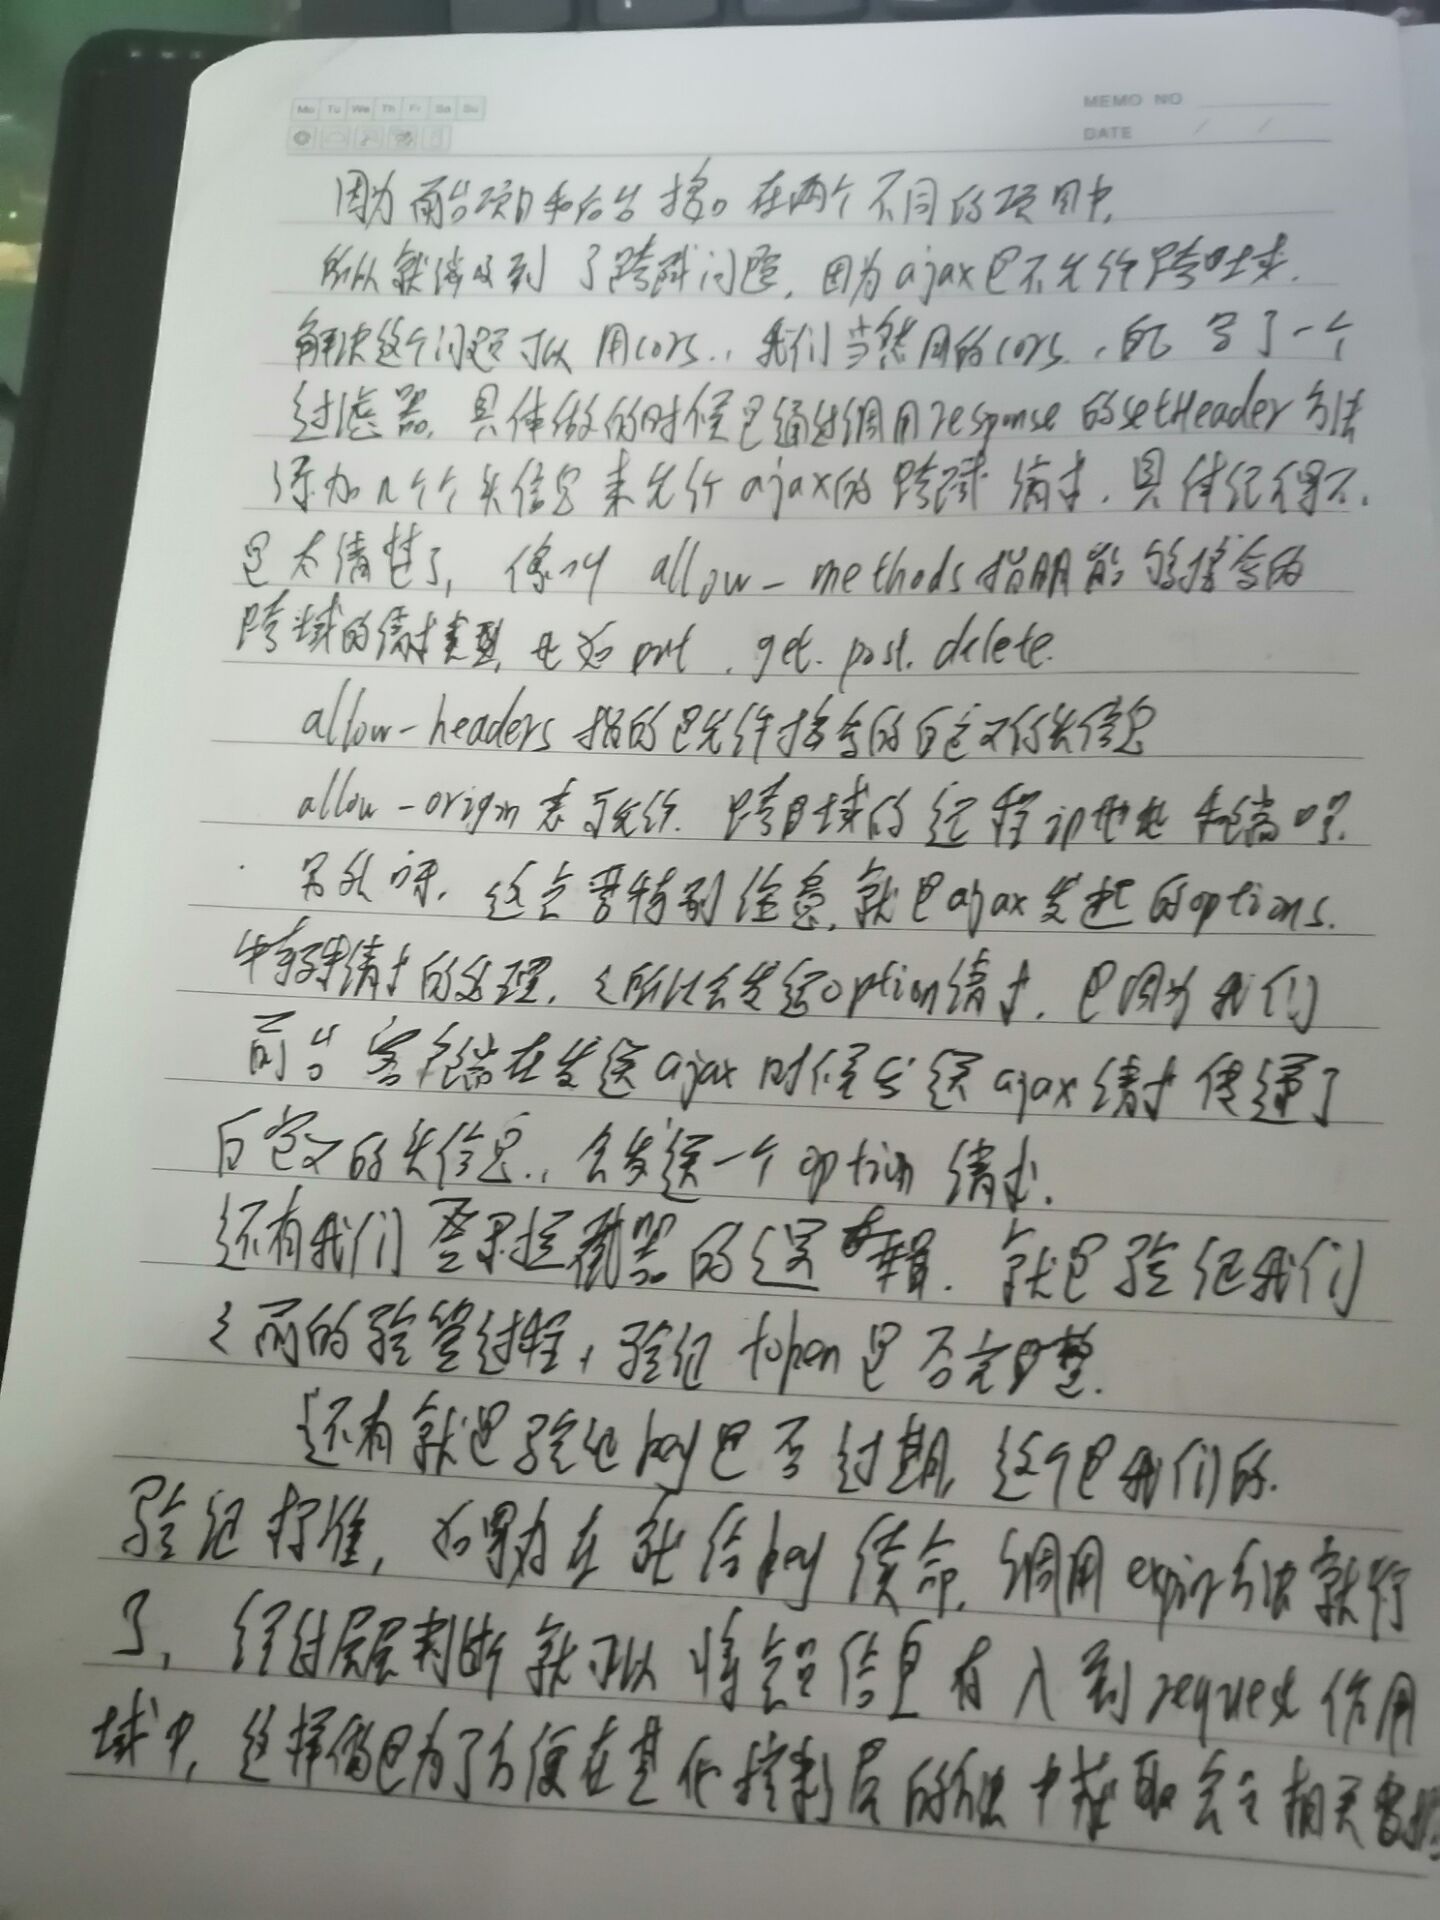 Mo Tu We Th Fr Sa Su
MEMO NO
DATE / /
因为前台项目和后台接口在两个不同的项目中,
所以就涉及到了跨域问题,因为ajax是不允许跨域.
解决这个问题可以用cors.,我们当然用的cors.,自己写了一个
过滤器,具体做的时候是通过调用response的setHeader方法
添加几个头信息来允许ajax的跨域请求,具体记得不.
是太清楚了,像叫 allow-methods指明能够接受的
跨域的请求类型,比如put.get.post.delete.
allow-headers指的是允许接受的自定义的头信息
allow-origin表示允许.跨域的远程ip地址和端口号.
另外呀,这点要特别注意,就是ajax发起的options.
特殊请求的处理,之所以会发送option请求,是因为我们
前台客户端在发送ajax时候发送ajax请求传递了
自定义的头信息.,会发送一个option请求.
还有我们登录拦截器的逻辑.就是验证我们
之前的验签过程,验证token是否完整.
还有就是验证key是否过期,这个是我们的.
验证标准,如果存在就给key续命,调用expire方法就行
了,经过层层判断就可以将会员信息存入到request作用
域中,这样做是为了方便在其他控制层的方法中获取会员相关数据